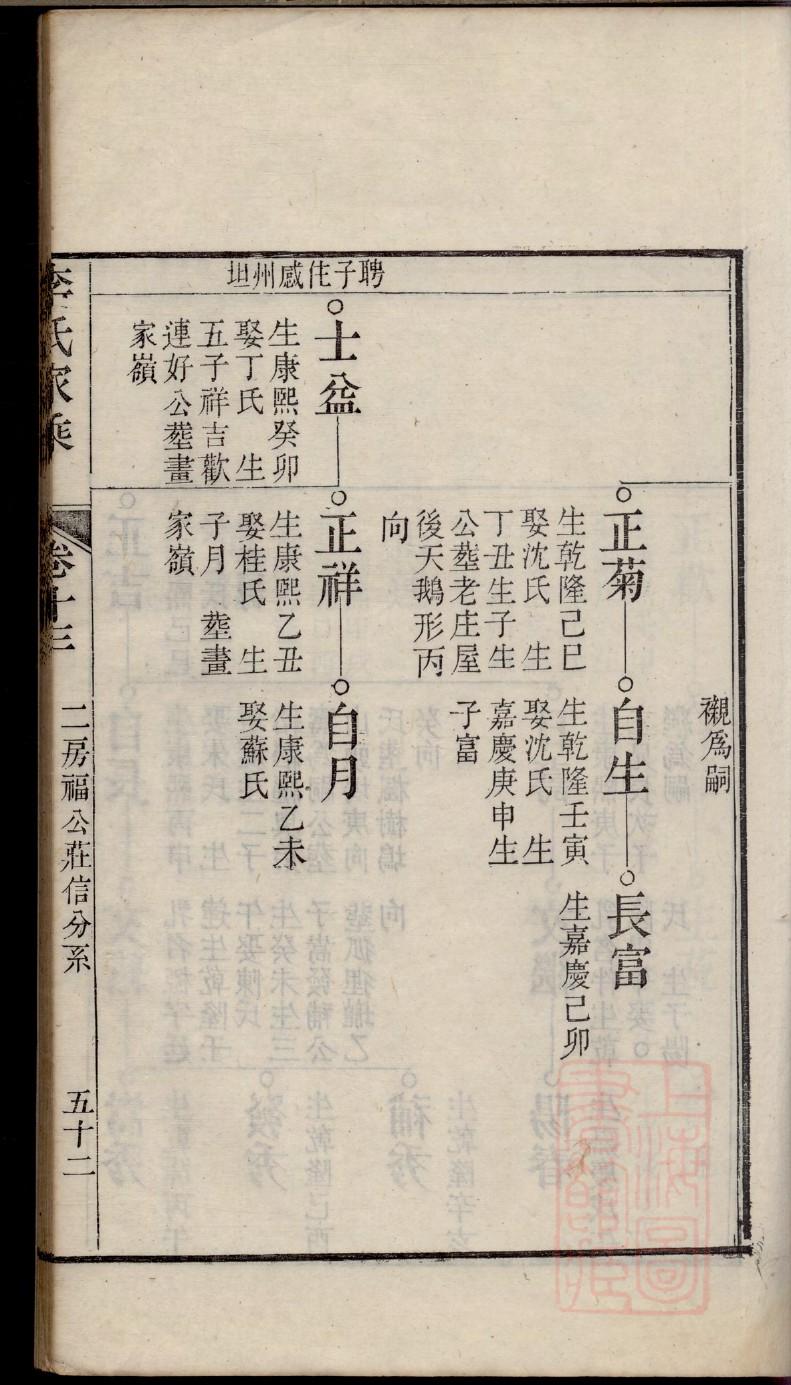 襯為嗣
正菊
生乾隆己巳
娶沈氏 生
丁丑生子生
公塟老庄屋
後天鵝形丙
向
自生
生乾隆壬寅
娶沈氏 生
嘉慶庚申生
子富
長富
生嘉慶己卯
聘子住感州坦
士益
生康熙癸卯
娶丁氏 生
五子祥吉歡
連好公塟畫
家嶺
正祥
生康熙乙丑
娶桂氏 生
子月 塟畫
家嶺
自月
生康熙乙未
娶蘇氏
李氏家乘
卷十三
二房福公莊信分系
五十二
上海圖書館藏